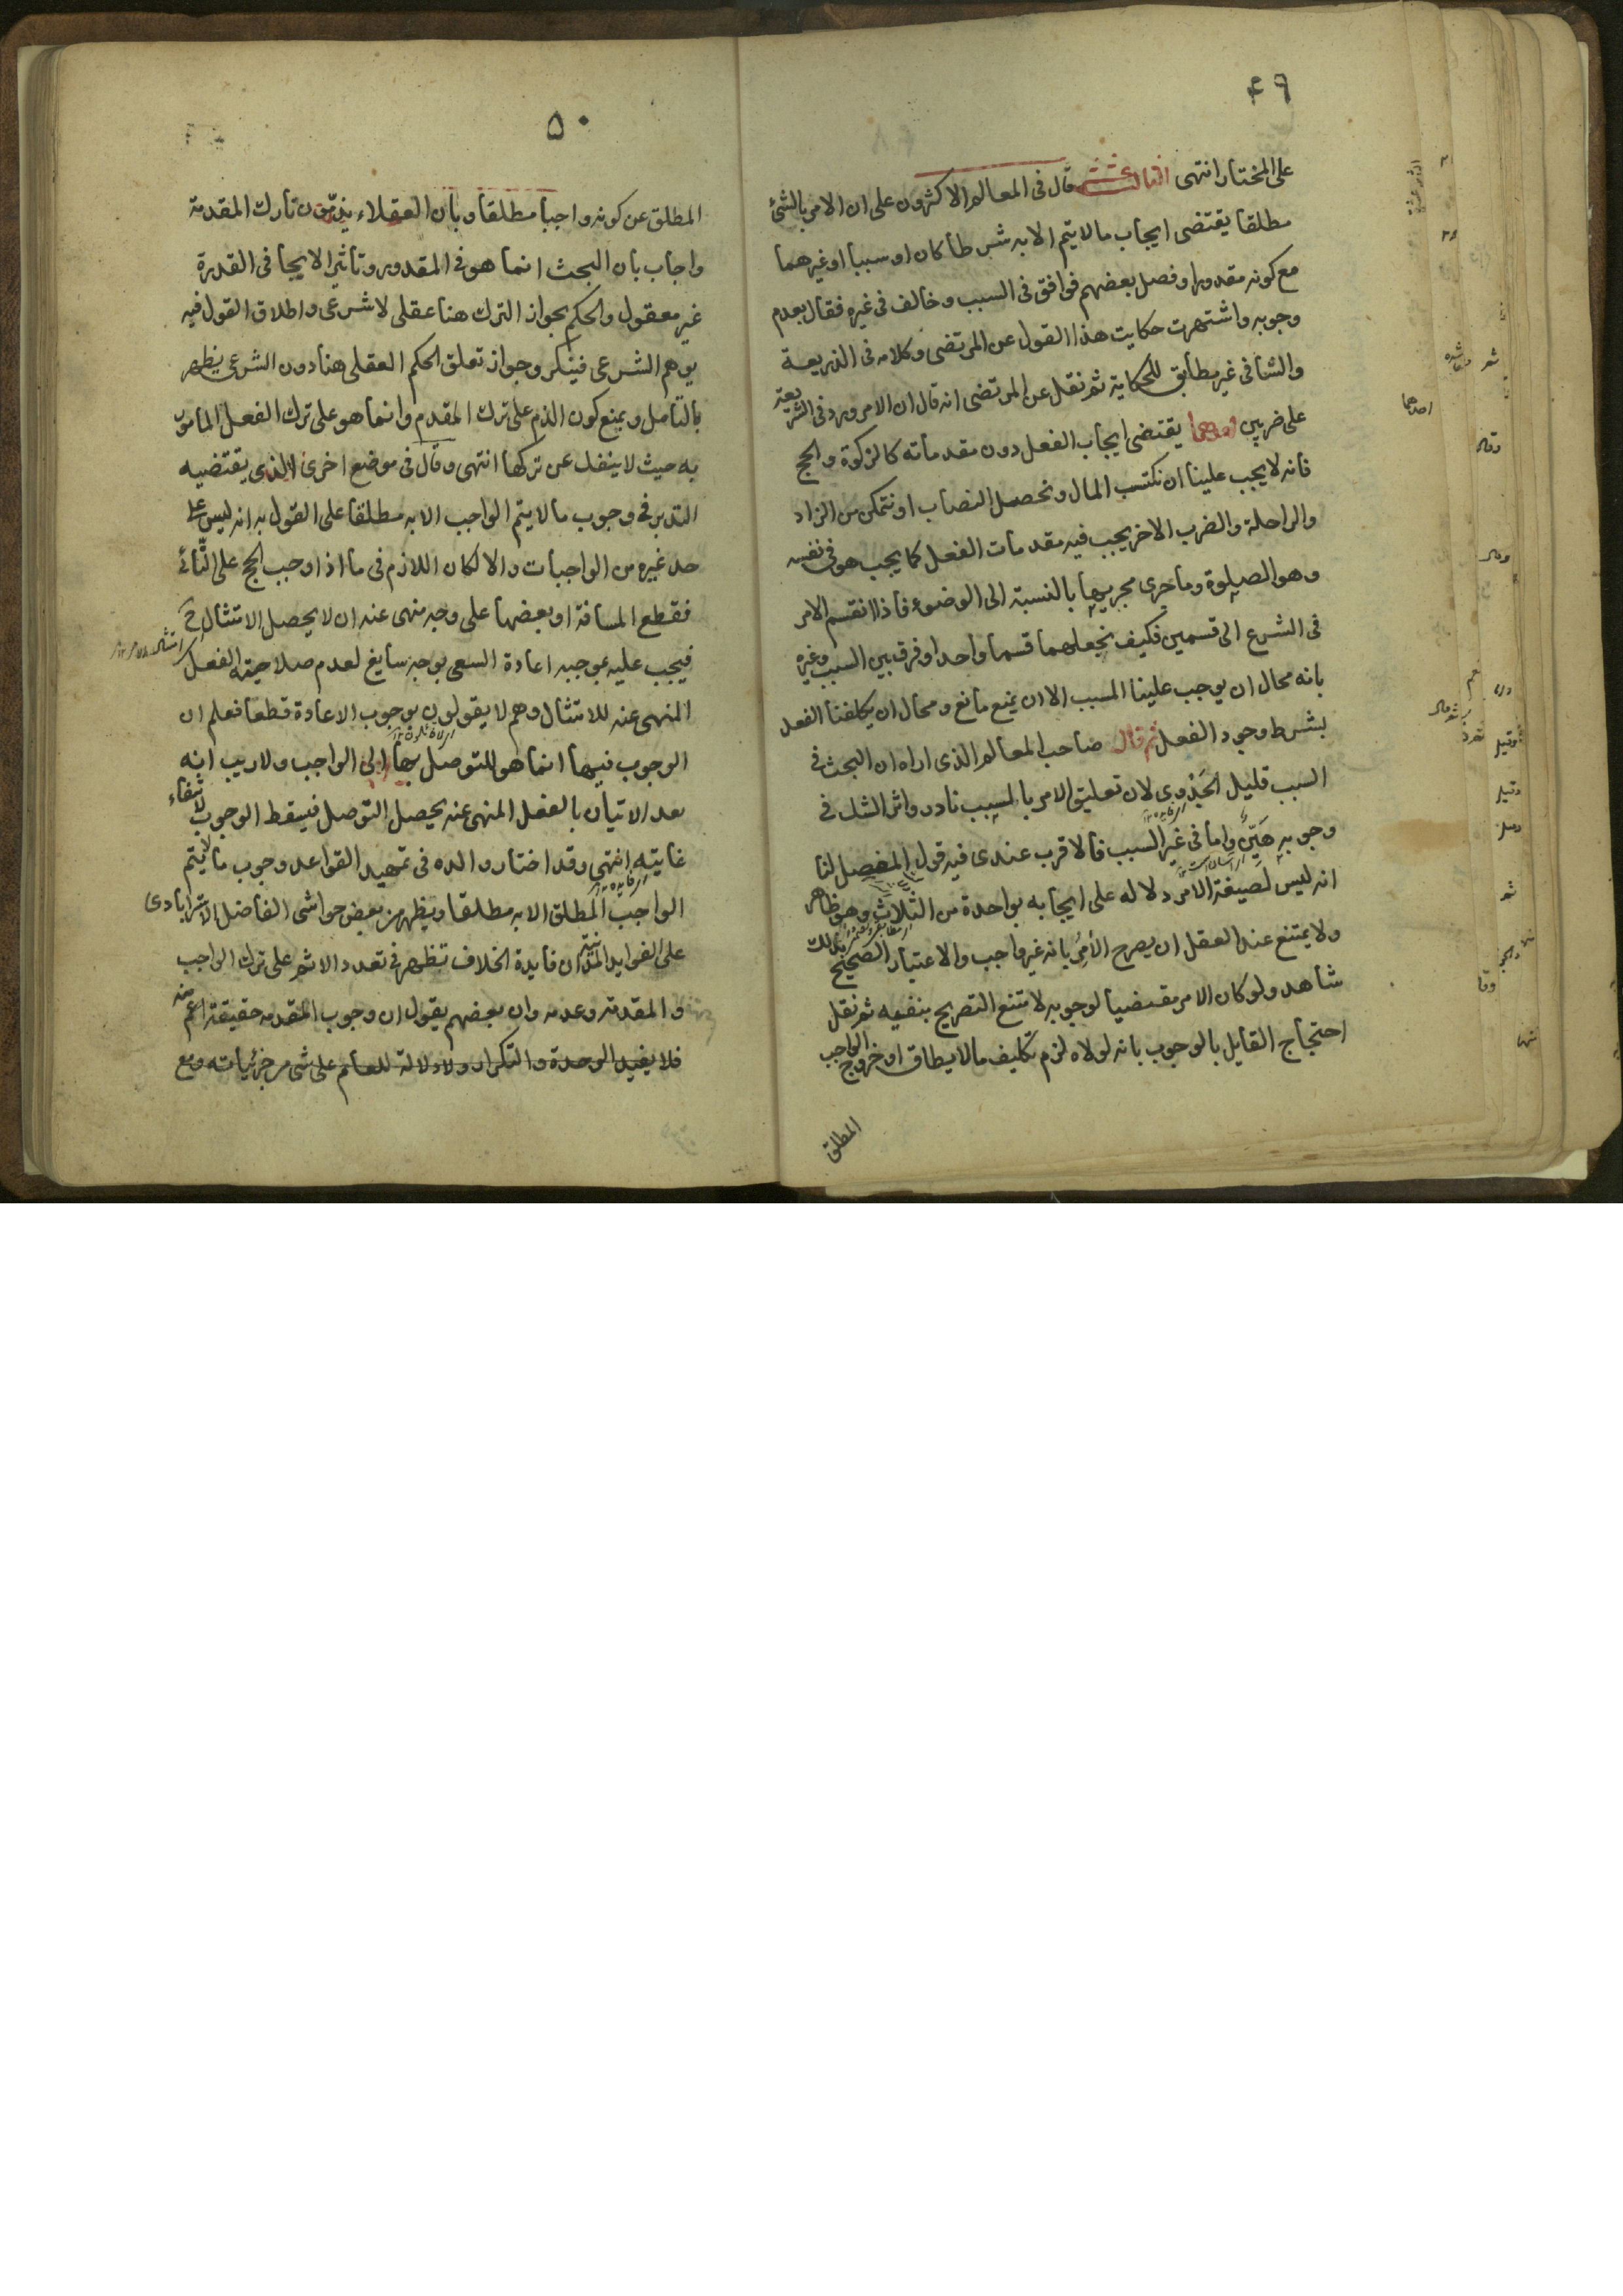 ۴۹
على المختار انتهى الثالثة عشر قال فى المعالم الاكثرون على ان الامر بالشئ
مطلقا يقتضى ايجاب ما لا يتم الا به شرطا كان او سببا او غيرهما
مع كونه مقدورا وفصل بعضهم فوافق فى السبب وخالف فى غيره فقال بعدم
وجوبه واشتهرت حكايت هذا القول عن المرتضى وكلامه فى الذريعة
والشافى غير مطابق للحكاية ثم نقل عن المرتضى انه قال ان الامر ورد فى الشريعة
على ضربين احدهما يقتضى ايجاب الفعل دون مقدماته كالزكوة والحج
فانه لا يجب علينا ان نكتسب المال ونحصل النصاب او نتمكن من الزاد
والراحلة والضرب الاخر يجب فيه مقدمات الفعل كما يجب هو فى نفسه
وهو الصلوة وما جرى مجريها بالنسبة الى الوضوء فاذا انقسم الامر
فى الشرع الى قسمين فكيف نجعلهما قسما واحدا وفرق بين السبب وغيره
بانه محال ان يوجب علينا المسبب الا ان يمنع مانع ومحال ان يكلفنا الفعل
بشرط وجود الفعل ثم قال صاحب المعالم الذى اراه ان البحث فى
السبب قليل الجذوى لان تعليق الامر بالمسبب نادر واثر الشك فى
وجوبه هيّن واما فى غير السبب فالاقرب عندى فيه قول المفصل لنا
انه ليس لصيغة الامر دلاله على ايجابه بواحدة من الثلاث وهو ظاهر
ولا يمتنع عند العقل ان يصرح الأمر بانه غير واجب والاعتبار الصحيح بذلك
شاهد ولو كان الامر مقتضيا لوجوبه لامتنع التصريح بنفيه ثم نقل
احتجاج القايل بالوجوب بانه لولاه لزم تكليف ما لا يطاق او خروج الواجب
المطلق
۵۰
المطلق عن كونه واجبا مطلقا وبان العقلاء يذمّون تارك المقدمة
واجاب بان البحث انما هو فى المقدور وتاثير الايجا فى القدرة
غير معقول والحكم بجواز الترك هنا عقلى لا شرعى واطلاق القول فيه
يوهم الشرعى فينكر وجواز تعلق الحكم العقلى هنا دون الشرعى يظهر
بالتامل ويمنع كون الذم على ترك المقدم وانما هو على ترك الفعل المامور
به حيث لا ينفك عن تركها انتهى وقال فى موضع اخرى الذى يقتضيه
التدبر فى وجوب ما لا يتم الواجب الا به مطلقا على القول به انه ليس على
حد غيره من الواجبات والا لكان اللازم فى ما اذا وجب الحج على النّائى
فقطع المسافة او بعضها على وجه منهى عنه ان لا يحصل الامتثال ح
فيجب عليه بوجبه اعادة السعى بوجه سايغ لعدم صلاحية الفعل
المنهى عنه للامتثال وهم لا يقولون بوجوب الاعادة قطعا فعلم ان
الوجوب فيها انما هو للتوصل بها الى الواجب ولا ريب انه
بعد الاتيان بالفعل المنهى عنه يحصل التوصل فيسقط الوجوب لانتفاء
غايته انتهى وقد اختار والده فى تمهيد القواعد وجوب ما لا يتم
الواجب المطلق الا به مطلقا ويظهر من بعض حواشى الفاضل الاسترابادى
على الفوايد المدنية ان فايدة الخلاف تظهر فى تعدد الاثم على ترك الواجب
والمقدمة وعدمه وان بعضهم يقول ان وجوب المقدمه حقيقة اعم منه
فلا يفيد الوحدة والتكرار ولا دلالة للعام على شى من جزئياته ومع